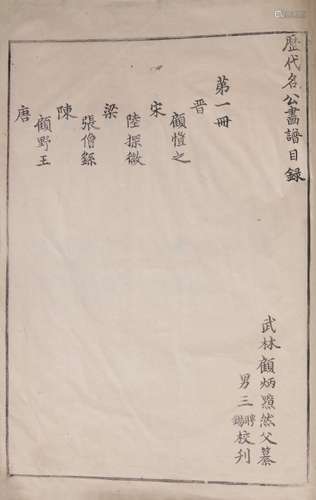 歷代名公畫譜目錄
武林顧炳黯然父纂
男三聘錫校刊
第一冊
晉
顧愷之
宋
陸探微
梁
張僧繇
陳
顧野王
唐